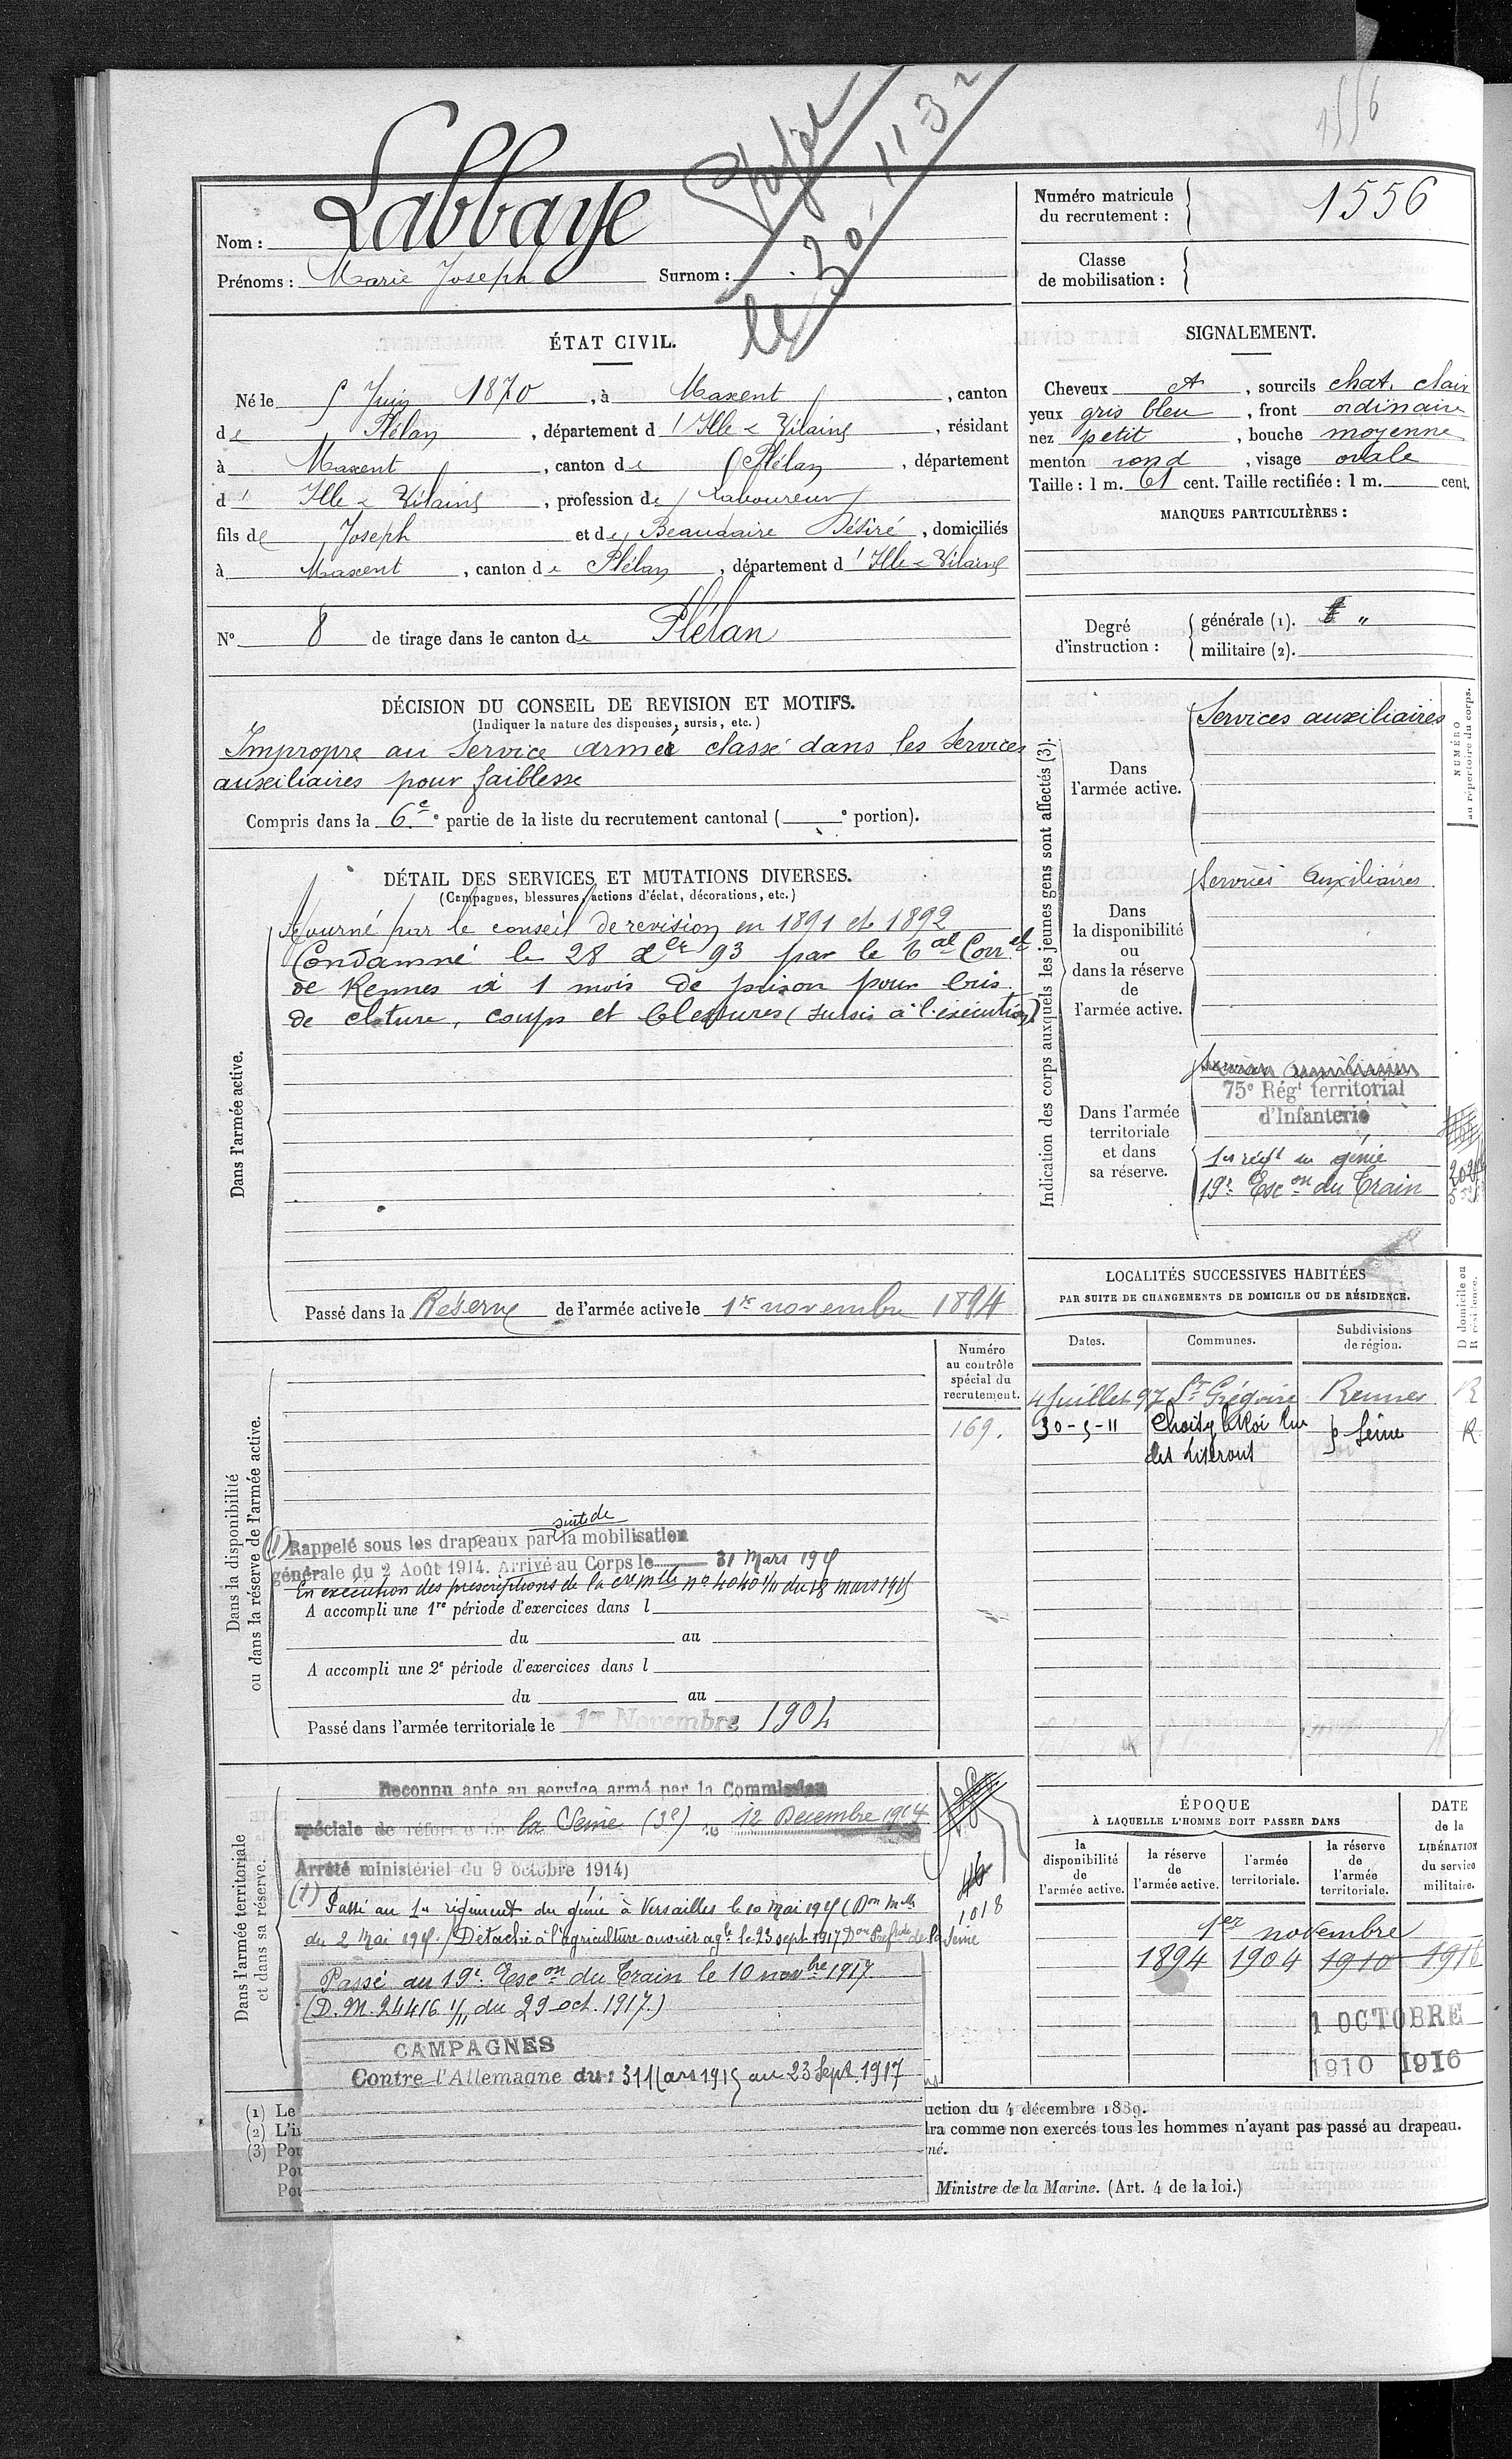 1556
Rayé
le 30-11-32
Nom : Labbaye
Prénoms : Marie Joseph Surnom :
Numéro matricule du recrutement : 1556
Classe de mobilisation :
ÉTAT CIVIL.
Né le 5 Juin 1870, à Maxent, canton
de Plélan, département d'Ille & Vilaine, résidant
à Maxent, canton de Plélan, département
d' Ille & Vilaine, profession de laboureur
fils de Joseph et de Beaudaire Désiré, domiciliés
à Maxent, canton de Plélan, département d'Ille & Vilaine
N° 8 de tirage dans le canton de Plélan
SIGNALEMENT.
Cheveux et, sourcils chat. clair
yeux gris bleu, front ordinaire
nez petit, bouche moyenne
menton rond, visage ovale
Taille : 1 m. 61 cent. Taille rectifiée : 1 m. cent.
MARQUES PARTICULIÈRES :
Degré d'instruction :
générale (1). "
militaire (2).
DÉCISION DU CONSEIL DE REVISION ET MOTIFS.
(Indiquer la nature des dispenses, sursis, etc.)
Impropre au Service armé classé dans les Services
auxiliaires pour faiblesse
Compris dans la 6e e partie de la liste du recrutement cantonal ( e portion).
DÉTAIL DES SERVICES ET MUTATIONS DIVERSES.
(Campagnes, blessures, actions d'éclat, décorations, etc.)
Dans l'armée active.
Ajourné par le conseil de revision en 1891 et 1892
Condamné le 28 xbre 93 par le tal Correl
de Rennes à 1 mois de prison pour bris
de cloture, coups et blessures (sursis à l'exécution)
Passé dans la Réserve de l'armée active le 1er novembre 1894
Indication des corps auxquels les jeunes gens sont affectés (3).
NUMÉRO au répertoire du corps.
Dans l'armée active.
Services auxiliaires
Dans la disponibilité ou dans la réserve de l'armée active.
Services Auxiliaires
Dans l'armée territoriale et dans sa réserve.
Services auxiliaires
75e Régt territorial
d'Infanterie
1er régt du génie
19e Escon du Train
LOCALITÉS SUCCESSIVES HABITÉES
PAR SUITE DE CHANGEMENTS DE DOMICILE OU DE RÉSIDENCE.
Dates. Communes. Subdivisions de région. D domicile ou R résidence.
4 Juillet 97 St Grégoire Rennes R
30-5-11 Choisy le Roi Rue Seine R
des Liserons
Dans la disponibilité ou dans la réserve de l'armée active.
Numéro au contrôle spécial du recrutement.
169.
suite de
(1) Rappelé sous les drapeaux par la mobilisation
générale du 2 Août 1914. Arrivé au Corps le 31 Mars 1915
En exécution des prescriptions de la cre mlle no 4040 1/11 du 18 mars 1915
A accompli une 1re période d'exercices dans l
du au
A accompli une 2e période d'exercices dans l
du au
Passé dans l'armée territoriale le 1er Novembre 1904
Dans l'armée territoriale et dans sa réserve.
Reconnu apte au service armé par la Commission
spéciale de réforme de la Seine (3e) le 12 Decembre 1914
Arrêté ministériel du 9 octobre 1914)
(1) Passé au 1er régiment du génie à Versailles le 10 mai 1915 (Don mlle
du 2 Mai 1915.) Détaché à l'agriculture ouvrier agle le 23 sept 1917 Don Préfet de la Seine
1018
Passé au 19e Escon du Train le 10 novbre 1917
(D.M. 24416 1/11 du 29 oct. 1917.)
CAMPAGNES
Contre l'Allemagne du : 31 Mars 1915 au 23 Sept. 1917
ÉPOQUE
À LAQUELLE L'HOMME DOIT PASSER DANS
la disponibilité de l'armée active. la réserve de l'armée active. l'armée territoriale. la réserve de l'armée territoriale.
DATE de la LIBÉRATION du service militaire.
1er novembre
1894 1904 1910 1916
1 OCTOBRE
1910 1916
(1) Le
uction du 4 décembre 1889.
(2) L'i
ra comme non exercés tous les hommes n'ayant pas passé au drapeau.
(3) Pou
né.
Pou
Pou
Ministre de la Marine. (Art. 4 de la loi.)